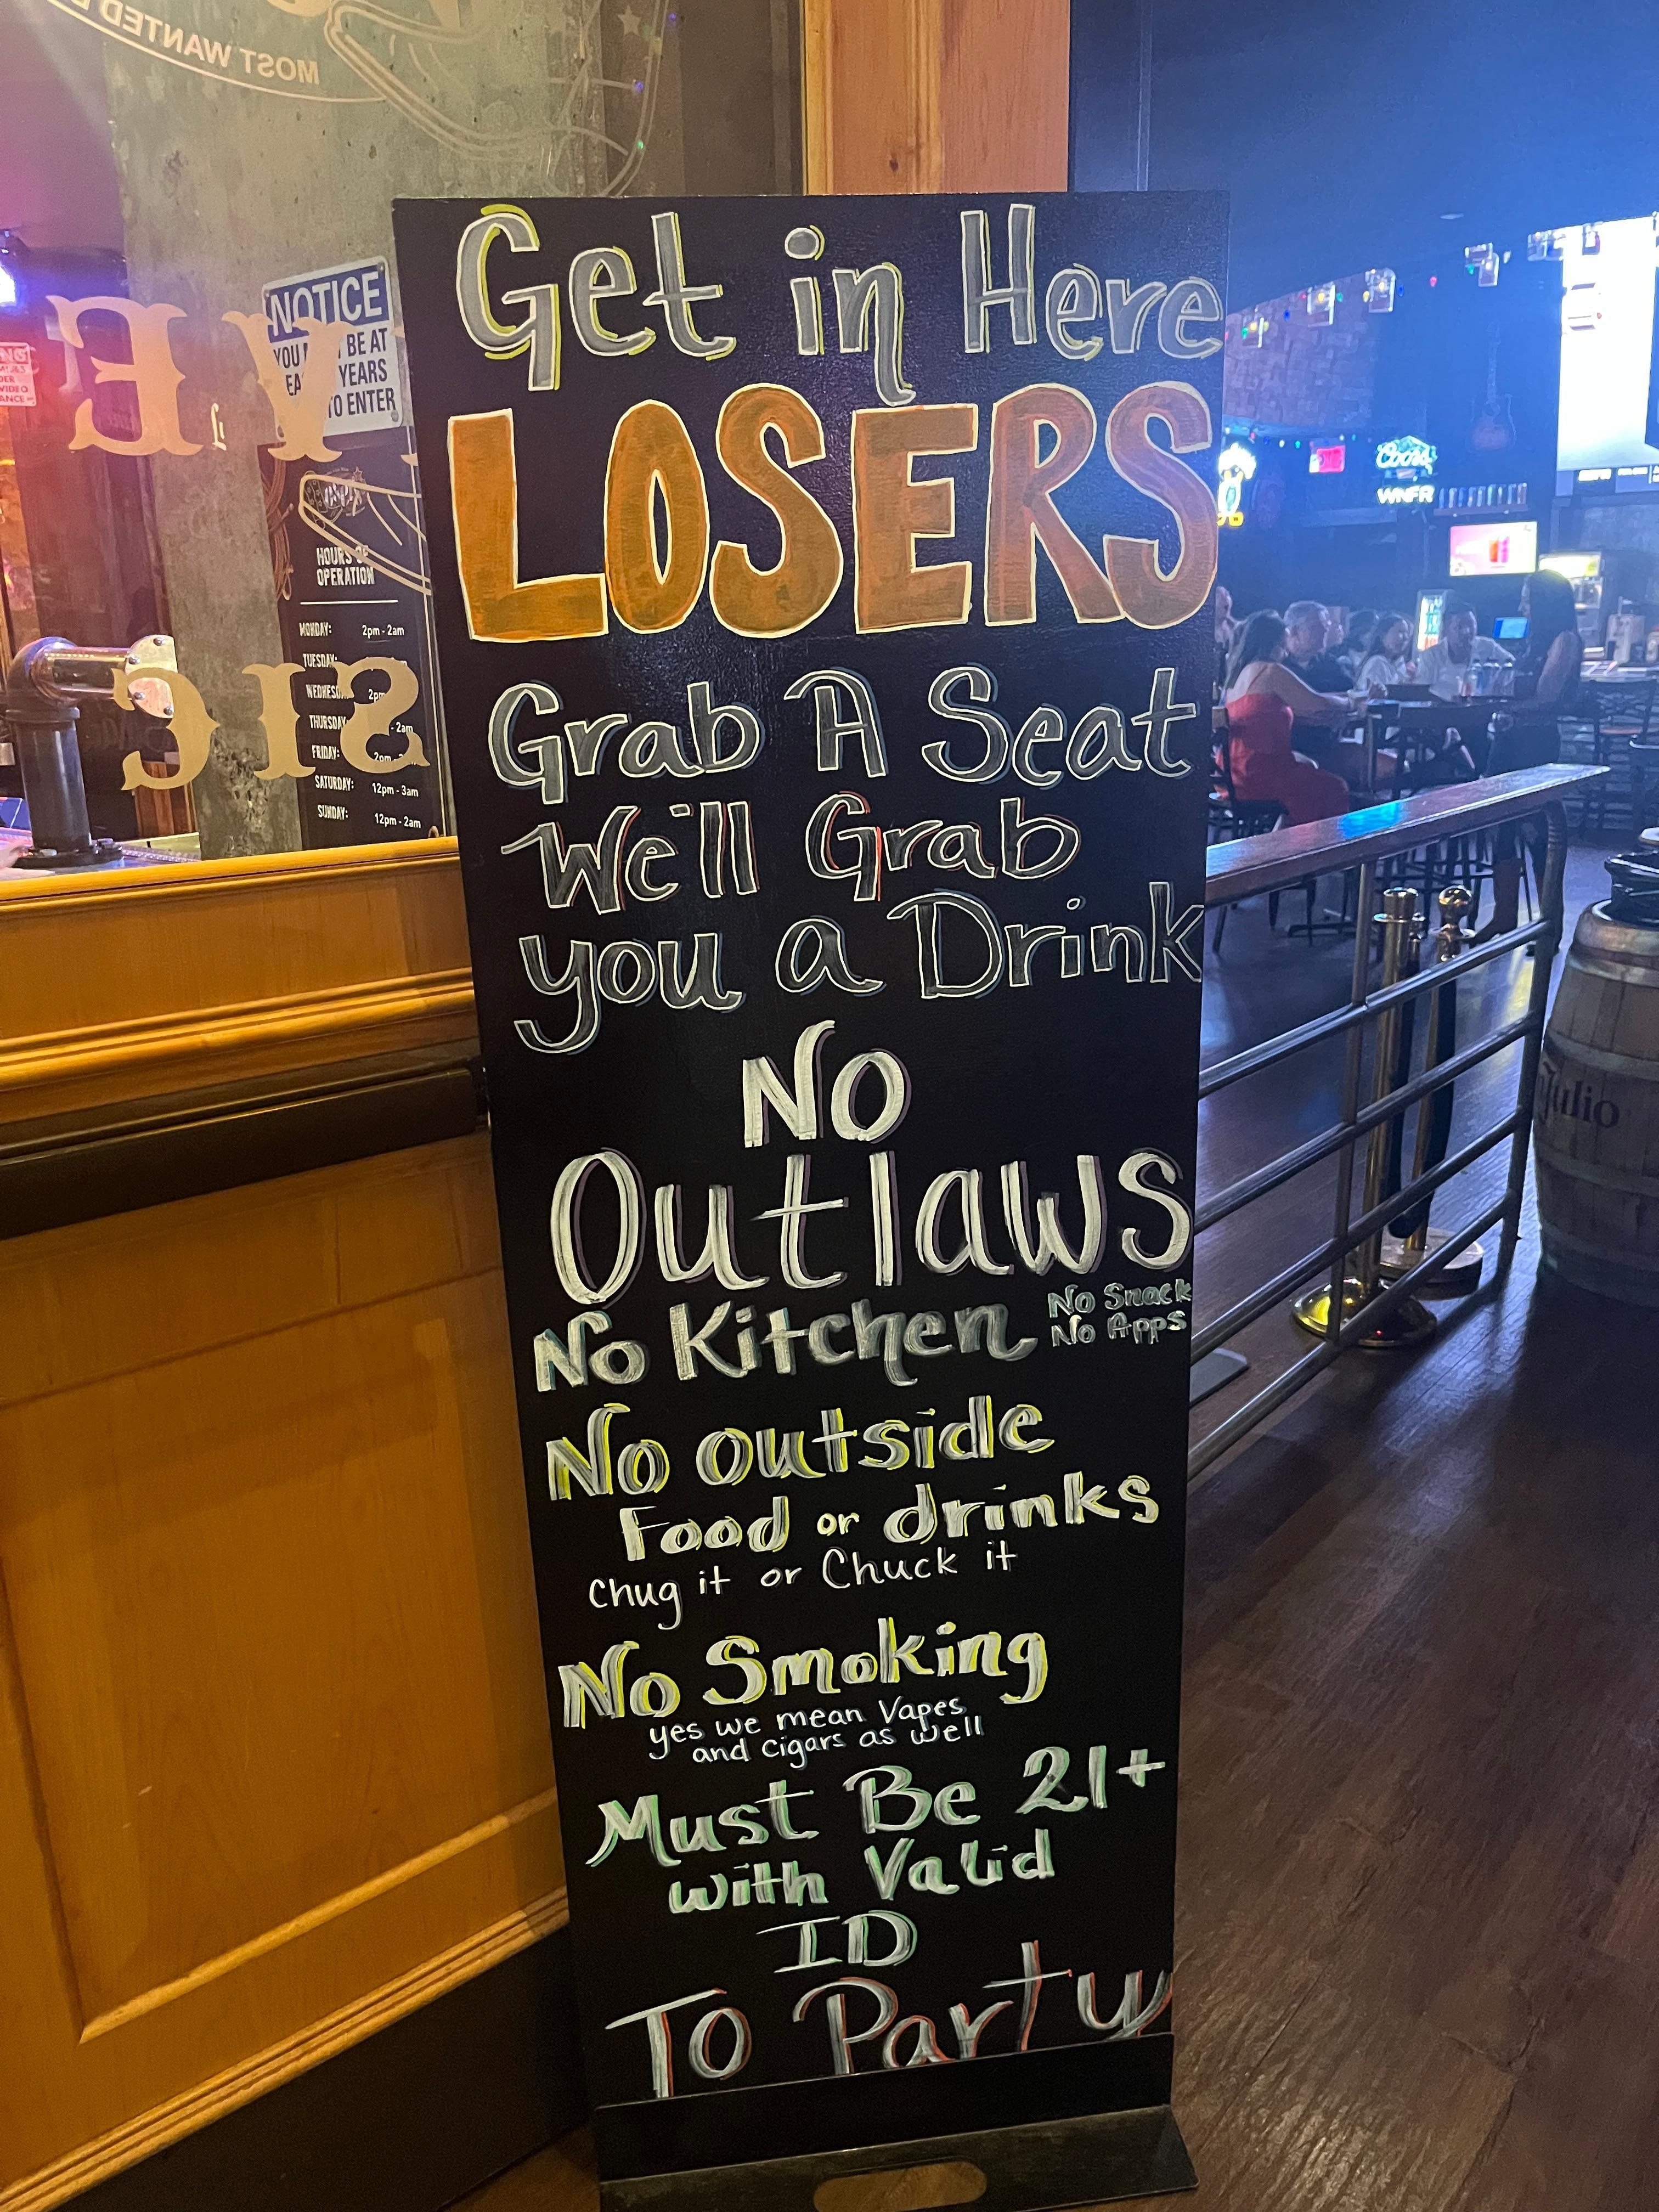 MOST WANTED
NOTICE
BE AT
YEARS
TO ENTER
VE
SIC
HOURS OF
OPERATION
MONDAY: 2pm - 2am
TUESDAY:
WEDNESDAY 2pm
THURSDAY - 2am
FRIDAY: 2pm
SATURDAY: 12pm - 3am
SUNDAY: 12pm - 2am
Get in Here
LOSERS
Grab A Seat
We'll Grab
you a Drink
No
Outlaws
No Kitchen
No Snack
No Apps
No outside
Food or drinks
Chug it or Chuck it
No Smoking
yes we mean Vapes
and cigars as well
Must Be 21+
with Valid
ID
To Party
Coors
WNFR
Julio